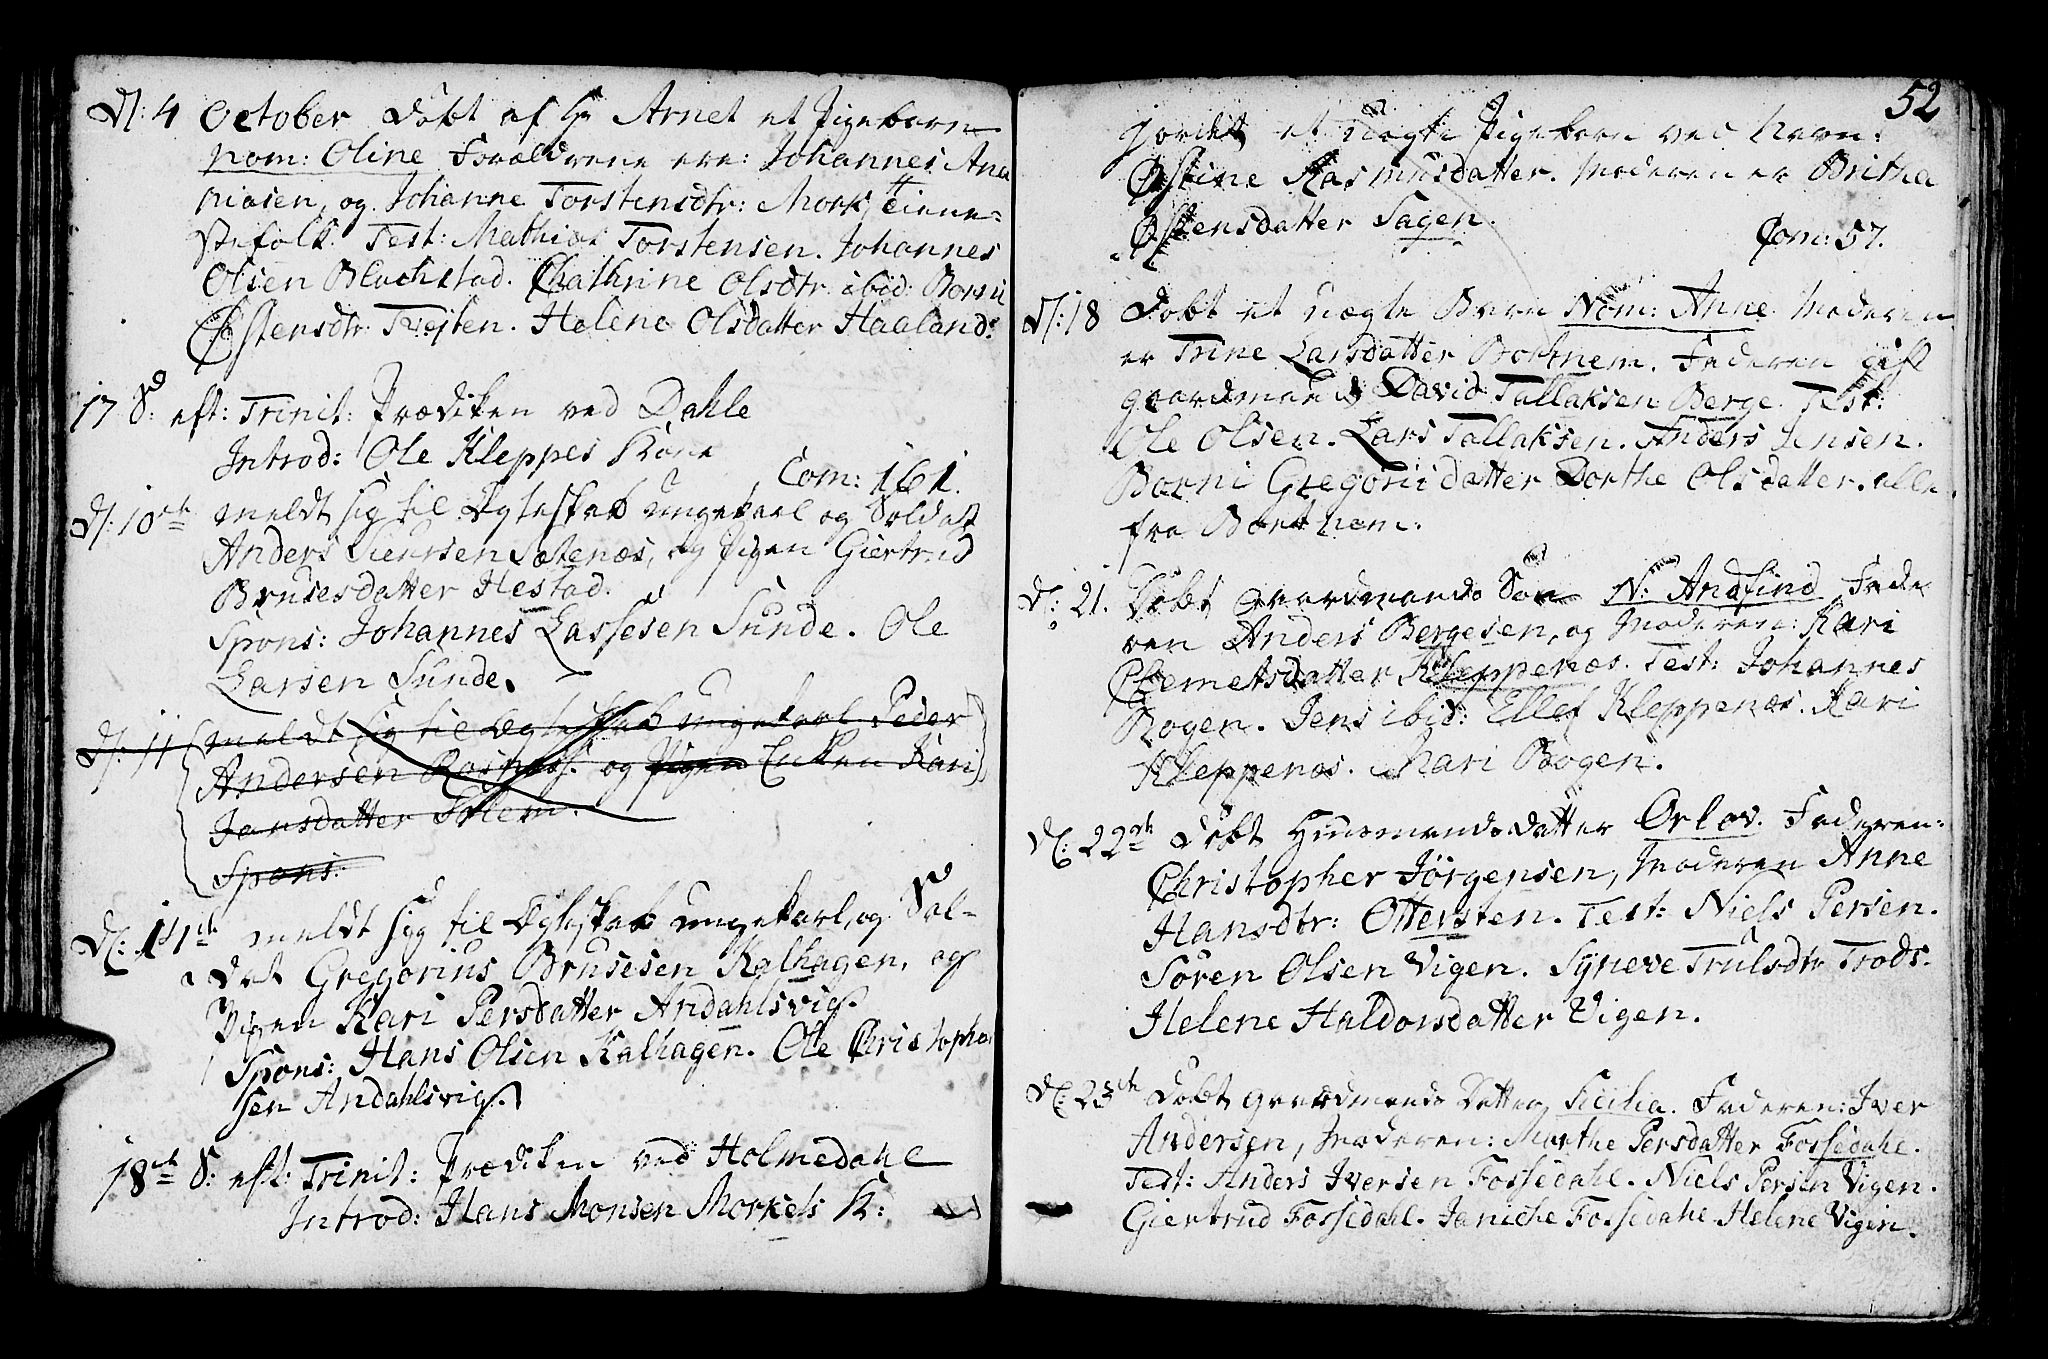 D: 4 October Døbt af Hr Arnet et Pigebarn
nom: Oline Forældrene ere: Johannes Ana
niasen, og Johanne Torstensdtr: Mork, tiene-
stefolk. Test: Mathias Torstensen. Johannes
Olsen Blachstad. Chathrine Olsdtr ibid: Borni
Østensdtr: Tvejten. Helene Olsdatter Haaland:
17 S: eft: Trinit: Prædiken ved Dahle
Introd: Ole Kleppes Kone
Com: 161.
D: 10de meldt sig til Egteskab ungekarl og Soldat
Anders Siursen Sætenæs, og Pigen Giertrud
Brusesdatter Hestad.
Spons: Johannes Lassesen Sunde. Ole
Larsen Sunde.
D: 11 meldt sig til Egteskab ungekarl Peder
Andersen og Pigen Enken Kari
Jansdatter
Spons:
D: 14de meldt sig til Egteskab ungekarl, og Sol-
dat Gregorius Brusesen Kalhagen, og
Pigen Kari Persdatter Andahlsvig.
Spons: Hans Olsen Kalhagen. Ole Christopher
sen Andahlsvig.
18de S: eft: Trinit: Prædiken ved Holmedahl
Introd: Hans Monsen Morkels K:
52
gjordet et uægte Pigebarn ved Navn:
Østine Rasmusdatter. Moderen er Britha
Østensdatter Sagen.
Com: 57.
D: 18 Døbt et uægte Barn Nom: Anne. Moderen
er Trine Larsdatter Borthnem. Faderen gift
gaardmand David Tallaksen Berge. Test:
Ole Olsen. Lars Tallaksen. Anders Jensen.
Borni Gregoriidatter Dorthe Olsdatter. alle
fra Borthnem.
D: 21. Døbt Gaardmands Søn N: Andfind Fade
ren Anders Bergesen, og Moderen: Kari
Clemetsdatter Kleppenæs. Test: Johannes
Bogen. Jens ibid: Ellef Kleppenæs. Kari
Kleppenæs. Mari Bogen.
D: 22de Døbt Huusmands datter Orlov. Faderen:
Christopher Jørgensen, Moderen Anne
Hansdtr: Ottersten. Test: Niels Persen.
Søren Olsen Vigen. Syneve Trulsdtr Trods.
Helene Haldorsdatter Vigen.
D: 23de Døbt gaardmands Datter Sicilia. Faderen: Iver
Andersen, Moderen: Marthe Persdatter Fossedahl.
Test: Anders Iversen Fossedahl. Niels Persen Vigen.
Giertrud Fossedahl. Janiche Fossedahl. Helene Vigen.